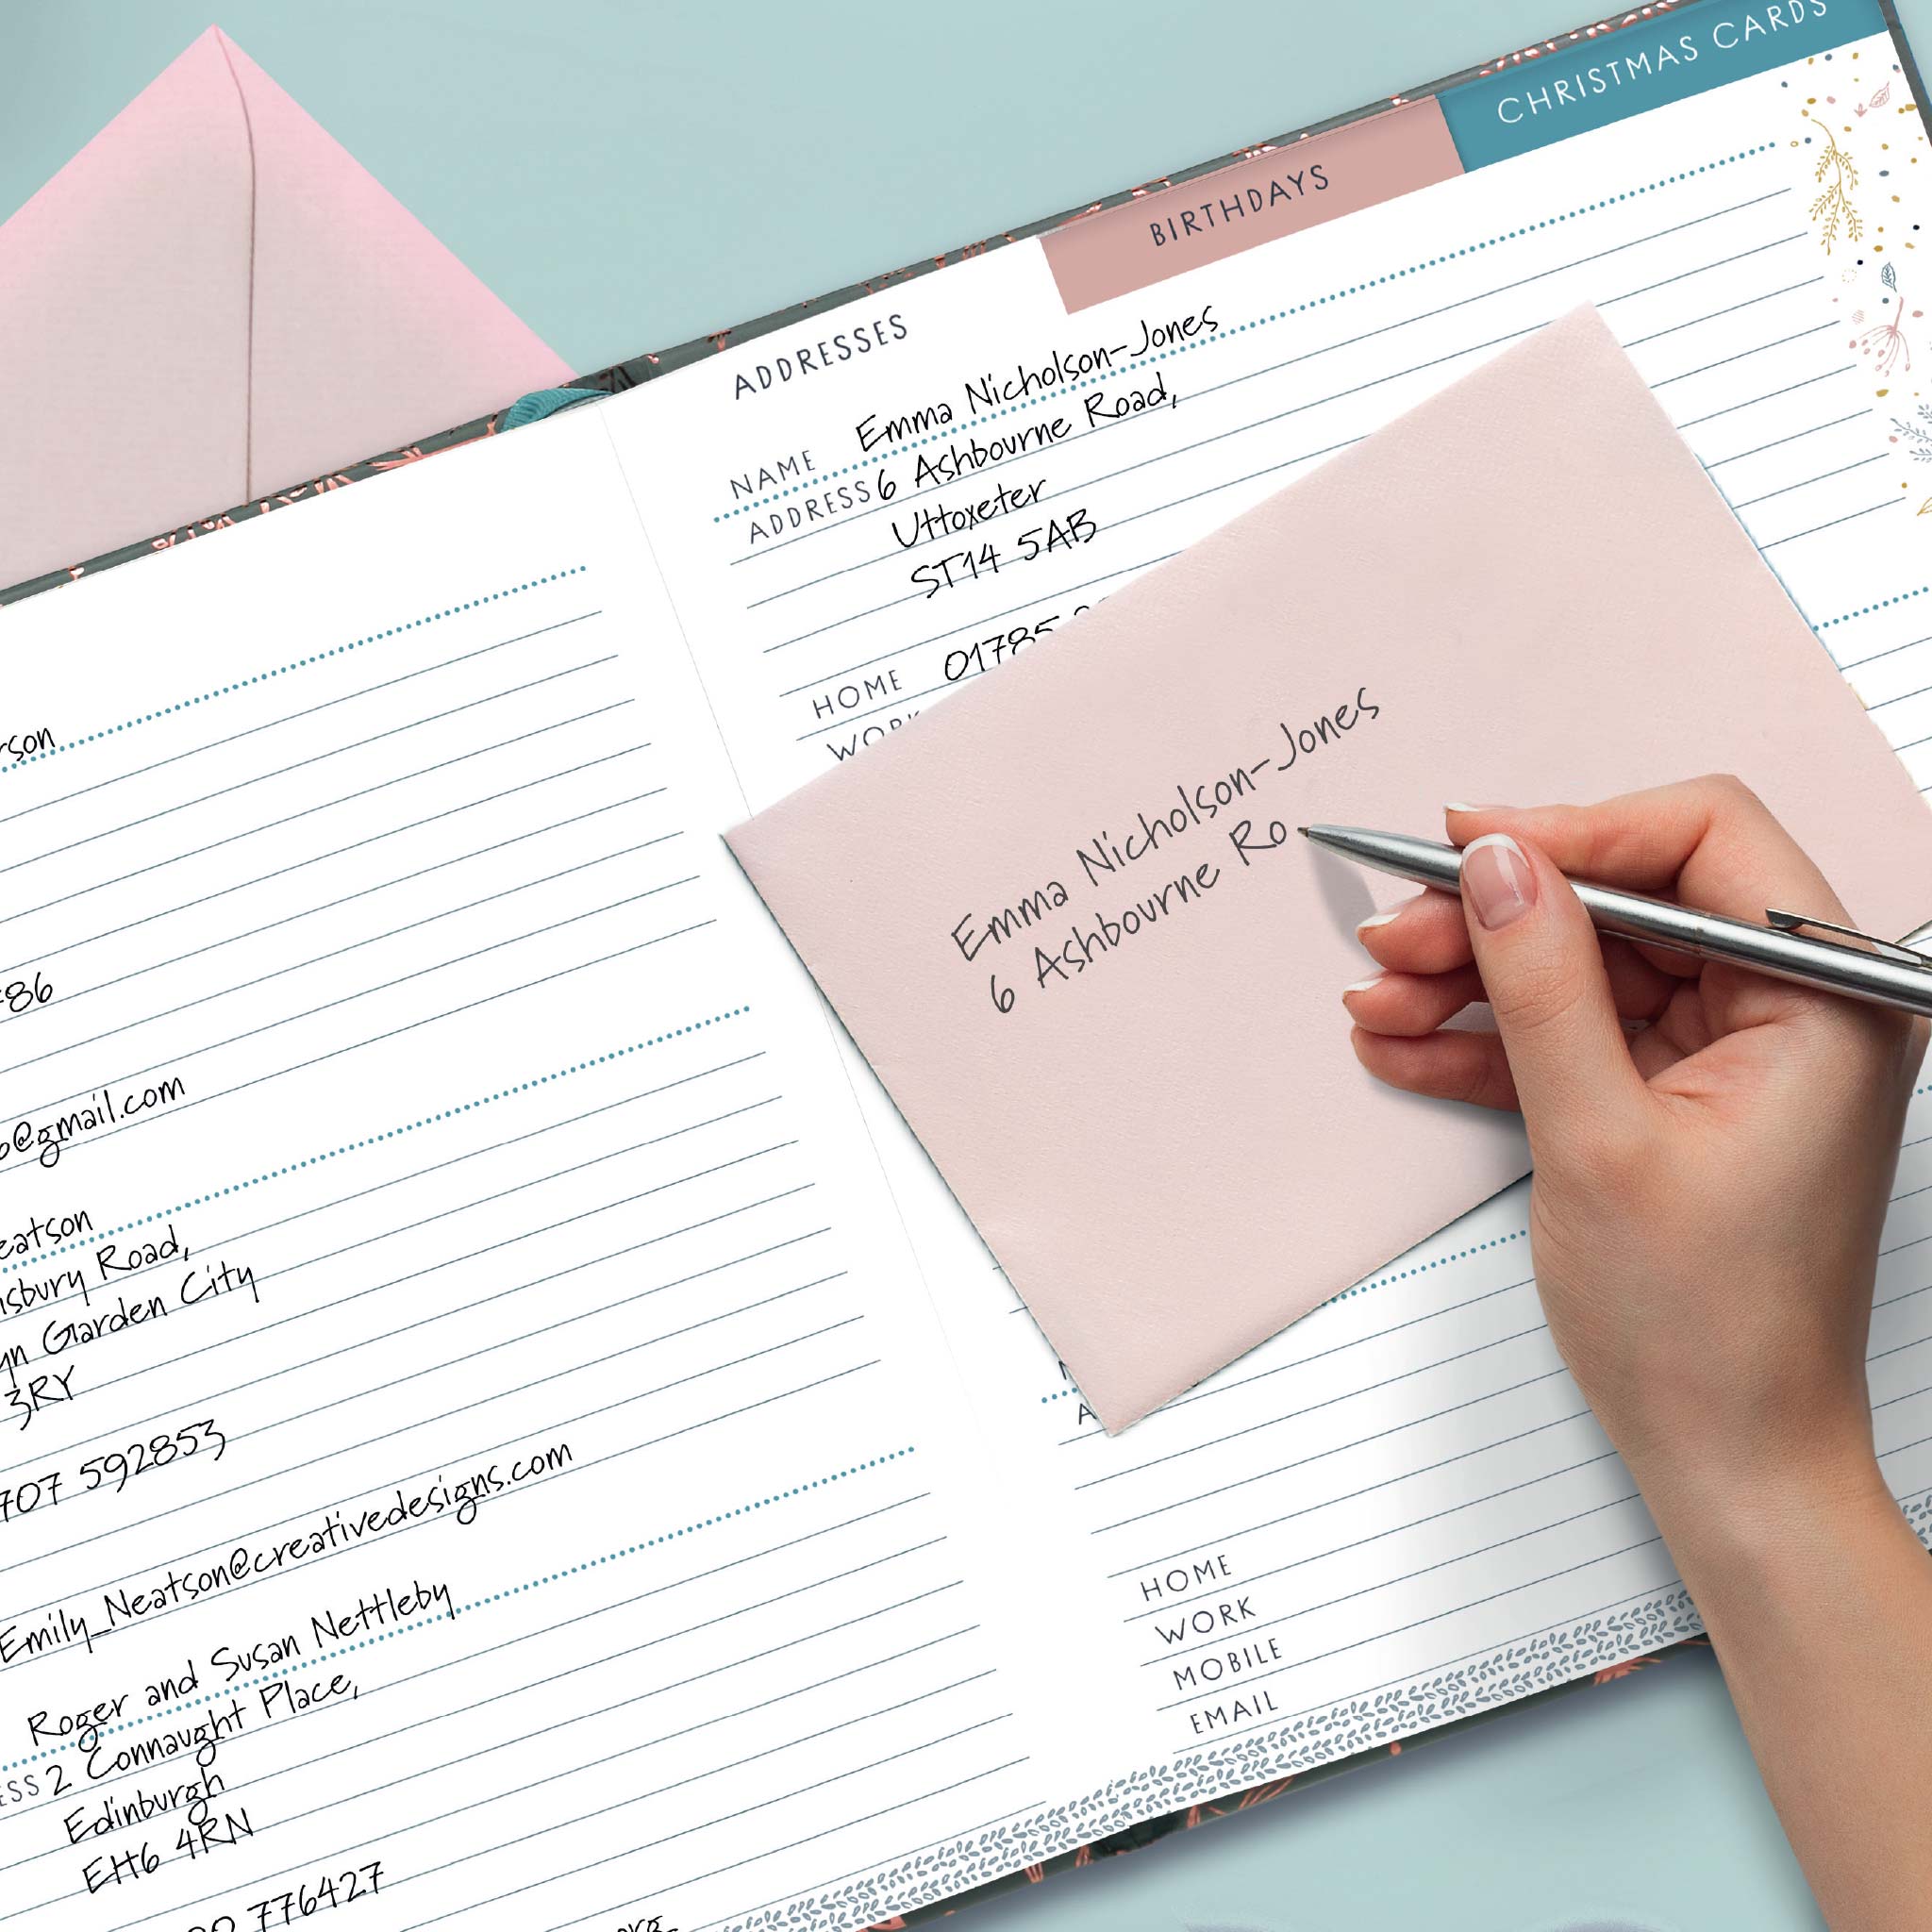 CHRISTMAS CARDS
BIRTHDAYS
ADDRESSES
NAME Emma Nicholson-Jones
ADDRESS 6 Ashbourne Road,
Uttoxeter
ST14 5AB
HOME 01785
WORK
Emma Nicholson-Jones
6 Ashbourne Ro
HOME
WORK
MOBILE
EMAIL
rson
86
@gmail.com
eatson
sbury Road,
yn Garden City
3RY
707 592853
Emily_Neatson@creativedesigns.com
Roger and Susan Nettleby
ESS 2 Connaught Place,
Edinburgh
EH6 4RN
776427